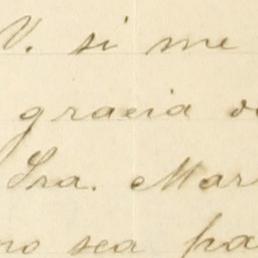 V. si me
gracia
Sra. Mar
no sea pa